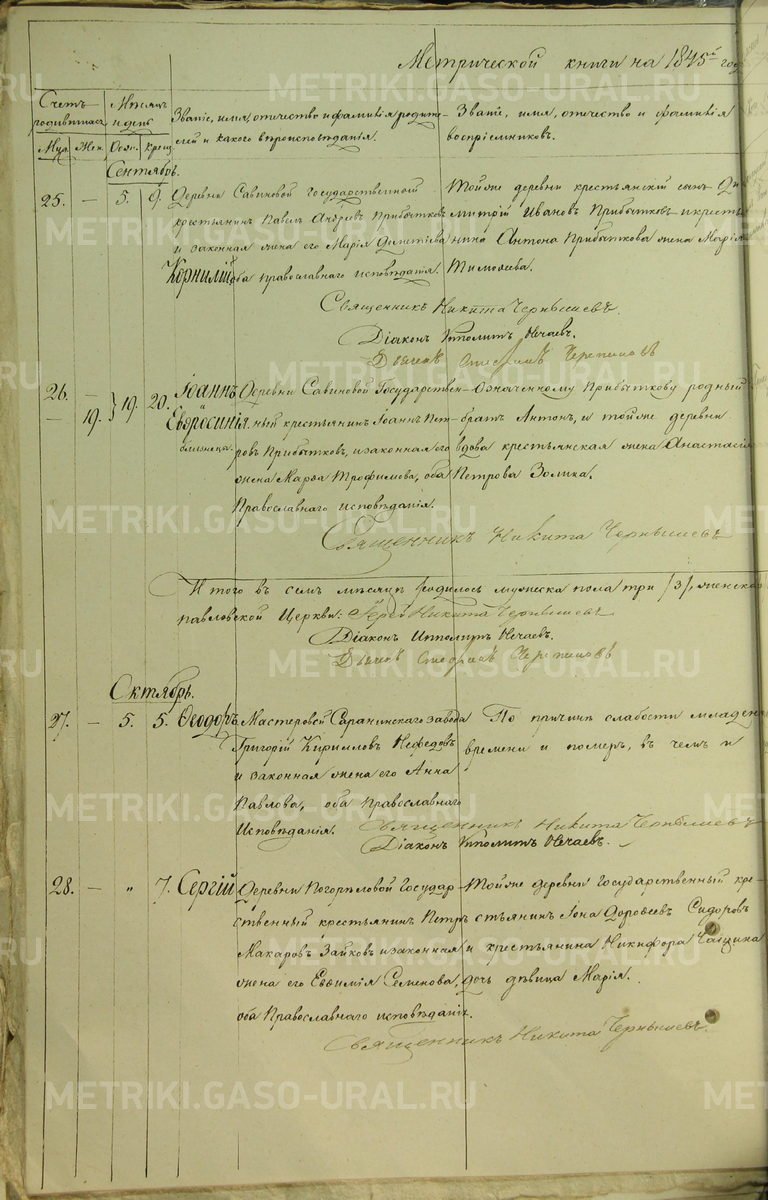 Метрической книги на 1845й год
Счетъ родившихся
Мѣсяцъ и день
Званіе, имя, отечество и фамилія родите-
лей и какого вѣроисповѣданія.
Званіе, имя, отечество и фамилія
воспріемниковъ.
Муж. Жен. Рож. Крещ.
Сентябрь.
25. — 5. 9. Деревни Савиновой Государственный
крестьянинъ Павелъ Андреевъ Прибытковъ
и законная жена его Марія
Корнилій оба православнаго исповѣданія.
Тойже деревни крестьянскій сынъ Ди-
митрій Ивановъ Прибытковъ и кресть-
нина Антона Прибыткова жена Марія
Тимоѳеева.
Священникъ Никита Чернышевъ.
Діаконъ Ипполитъ Нечаевъ.
26. — 19. } 19. 20. Іоаннъ
Евфросинія
близнецы.
Деревни Савиновой Государствен-
ный крестьянинъ Іоаннъ Пет-
ровъ Прибытковъ, и законная его
жена Марѳа Трофимова, оба
Православнаго исповѣданія.
Означенному Прибыткову родный
братъ Антонъ, и тойже деревни
вдова крестьянская жена Анастасія
Петрова Зомина.
Священникъ Никита Чернышевъ
Итого въ семъ мѣсяцѣ родилось мужеска пола три /3/, женска
павловской Церкви: Іерей Никита Чернышевъ
Діаконъ Ипполитъ Нечаевъ.
Октябрь.
27. — 5. 5. Ѳеодоръ
Мастеровой Саранинскаго завода
Григорій Кирилловъ Нефедовъ
и законная жена его Анна
Павлова, оба православнаго
Исповѣданія.
По причинѣ слабости младен
времени и померъ, въ чемъ и
Священникъ Никита Чернышевъ
Діаконъ Ипполитъ Нечаевъ.
28. — „ 7. Сергій
Деревни Погорѣловой Государ-
ственный крестьянинъ Петръ
Макаровъ Зайковъ и законная
жена его Евфимія Семенова,
оба Православнаго исповѣданія.
Тойже деревни Государственный кре-
стьянинъ Іона Дороѳеевъ Сидоровъ
и крестьянина Никифора Чащина
дочь дѣвица Марія.
Священникъ Никита Чернышевъ.
METRIKI.GASO-URAL.RU